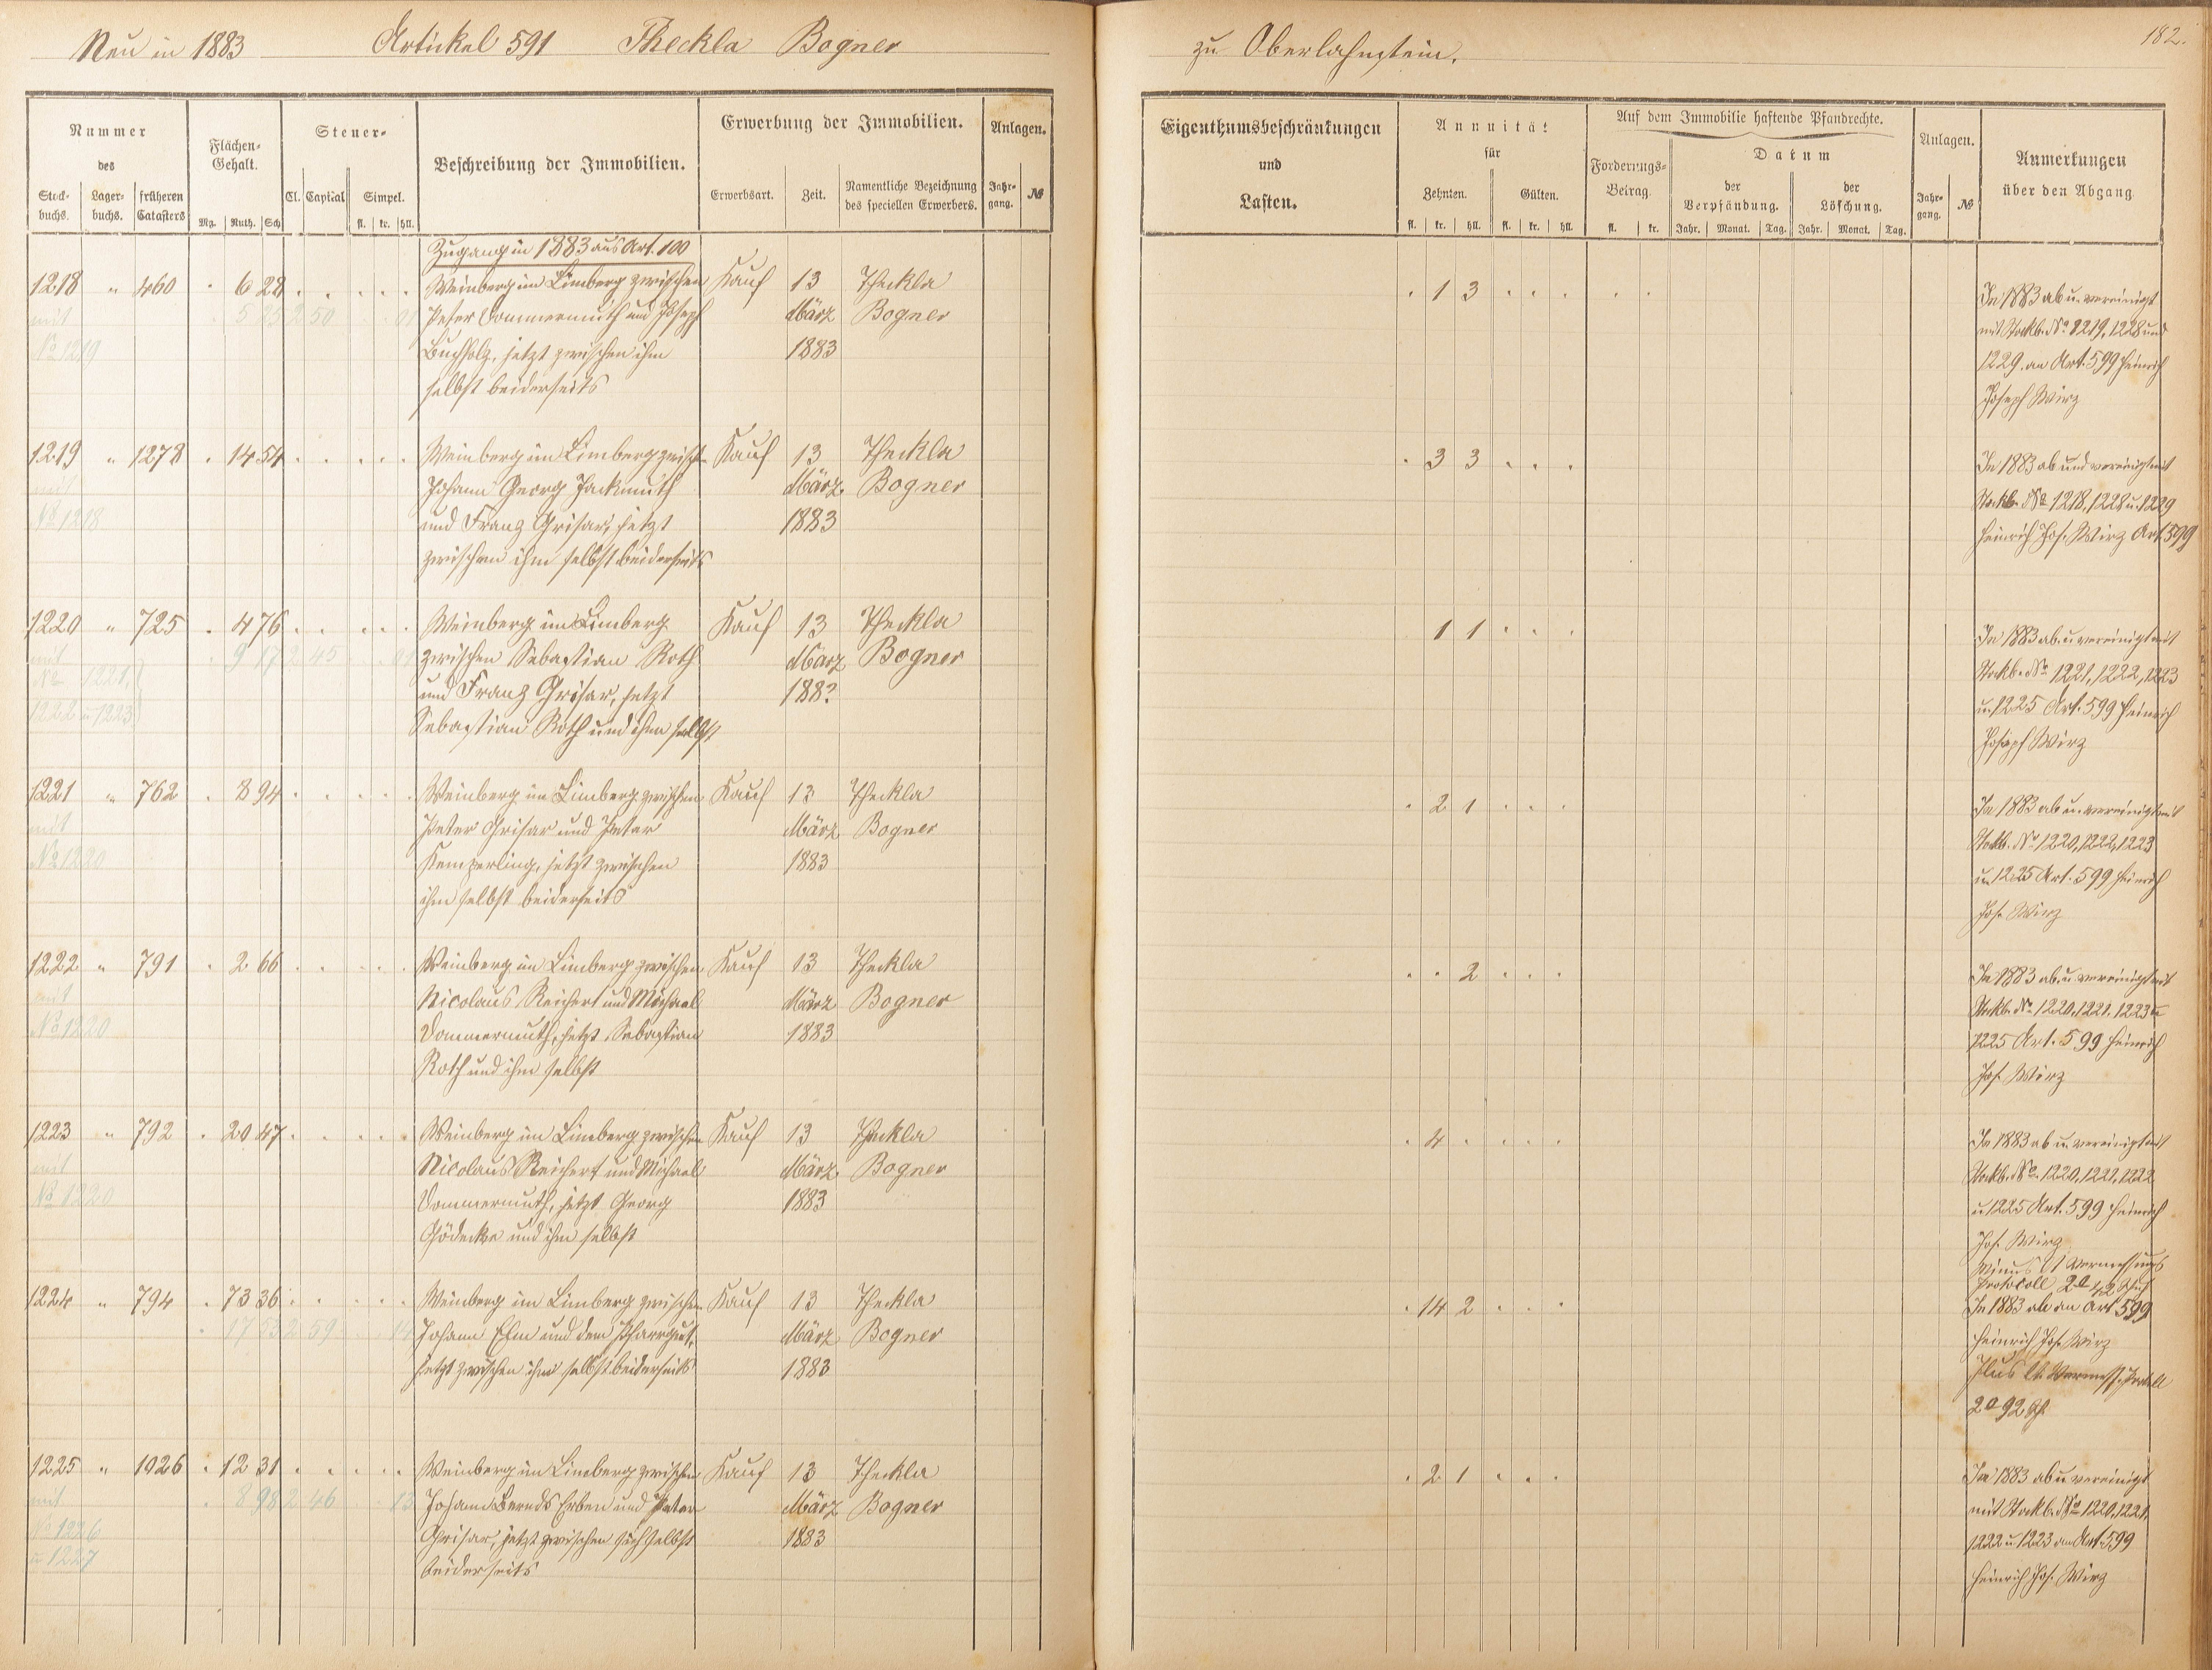 Neu in 1883 Artickel 591 Theckla Bogner
Nummer
des
Stock-buchs. Lager-buchs. früheren Catasters
Flächen-Gehalt.
Mg. Ruth. Sch
Steuer-
Cl. Capital Simpel.
fl. kr. hll.
Beschreibung der Immobilien.
Erwerbung der Immobilien.
Erwerbsart. Zeit. Namentliche Bezeichnung des speciellen Erwerbers.
Anlagen.
Jahr-gang. №
Zugang in 1883 aus Art. 100
1218 " 460 . 6 28 . . . . . Weinberg im Limberg zwischen Kauf 13 Theckla
mit . 5 25 2 50 . . 01 Peter Dommermuth und Joseph März Bogner
No 1219 Buchholz, jetzt zwischen ihm 1883
selbst beiderseits
1219 " 1278 . 14 54 . . . . . Weinberg im Limberg zwisch. Kauf 13 Theckla
mit Johann Georg Jackmuth März Bogner
No 1218 und Franz Grisar, jetzt 1883
zwischen ihm selbst beiderseits
1220 " 725 . 4 76 . . . . . Weinberg im Limberg Kauf 13 Theckla
mit . 9 17 2 45 . . 01 zwischen Sebastian Roth März Bogner
No 1221, und Franz Grisar, jetzt 1883
1222 u 1223 Sebastian Roth und ihm selbst
1221 " 762 . 8 94 . . . . . Weinberg im Limberg zwischen Kauf 13 Theckla
mit Peter Grisar und Peter März Bogner
No 1220 Kemperling, jetzt zwischen 1883
ihm selbst beiderseits
1222 " 791 . 2 66 . . . . . Weinberg im Limberg zwischen Kauf 13 Theckla
mit Nicolaus Reichert und Michael März Bogner
No 1220 Dommermuth, jetzt Sebastian 1883
Roth und ihm selbst
1223 " 792 . 20 47 . . . . . Weinberg im Limberg zwischen Kauf 13 Theckla
mit Nicolaus Reichert und Michael März Bogner
No 1220 Dommermuth, jetzt Georg 1883
Gödecke und ihm selbst
1224 " 794 . 73 36 . . . . . Weinberg im Limberg zwischen Kauf 13 Theckla
. 17 53 2 59 . . 14 Johann Elm und dem Pfarrgut, März Bogner
jetzt zwischen ihm selbst beiderseits 1883
1225 " 1026 . 12 31 . . . . . Weinberg im Limberg zwischen Kauf 13 Theckla
mit . 8 98 2 46 . . 13 Johann Bernds Erben und Peter März Bogner
No 1226 Grisar, jetzt zwischen sich selbst 1883
u 1227 beiderseits
zu Oberlahnstein.
182.
Eigenthumsbeschränkungen
und
Lasten.
Annuität
für
Zehnten. Gülten.
fl. kr. hll. fl. kr. hll.
Auf dem Immobilie haftende Pfandrechte.
Forderungs-Betrag.
fl. kr.
Datum
der Verpfändung. der Löschung.
Jahr. Monat. Tag. Jahr. Monat. Tag.
Anlagen.
Jahr-gang. №
Anmerkungen
über den Abgang
. 1 3 . . . . . In 1883 ab u. vereinigt
mit Stockb. No 1219, 1228 und
1229. an Art. 599 Heinrich
Joseph Wirz
. 3 3 . . . In 1883 ab und vereinigt mit
Stockb. No 1218, 1228 u. 1229
Heinrich Jos. Wirz Art. 599
1 1 . . . In 1883 ab u. vereinigt mit
Stockb. No 1221, 1222, 1223
u. 1225 Art. 599 Heinrich
Joseph Wirz
. 2 1 . . . In 1883 ab u. vereinigt mit
Stockb. No 1220, 1222, 1223
u. 1225 Art. 599 Heinrich
Jos. Wirz
. . 2 . . . In 1883 ab u. vereinigt mit
Stockb. No 1220, 1221. 1223 u
1225 Art. 599 Heinrich
Jos. Wirz
. 4 . . . . In 1883 ab u. vereinigt mit
Stockb. No. 1220, 1221, 1222
u 1225 Art. 599 Heinrich
Jos. Wirz
Minus lt Vermessungs
protocoll 2° 42 Sch.
. 14 2 . . . In 1883 ab an Art 599
Heinrich Jos. Wirz
Plus lt. Vermess. Protoll
2° 92 Sch.
. 2 1 . . . In 1883 ab u vereinigt
mit Stockb. No 1220, 1221,
1222 u 1223 an Art. 599
Heinrich Jos. Wirz